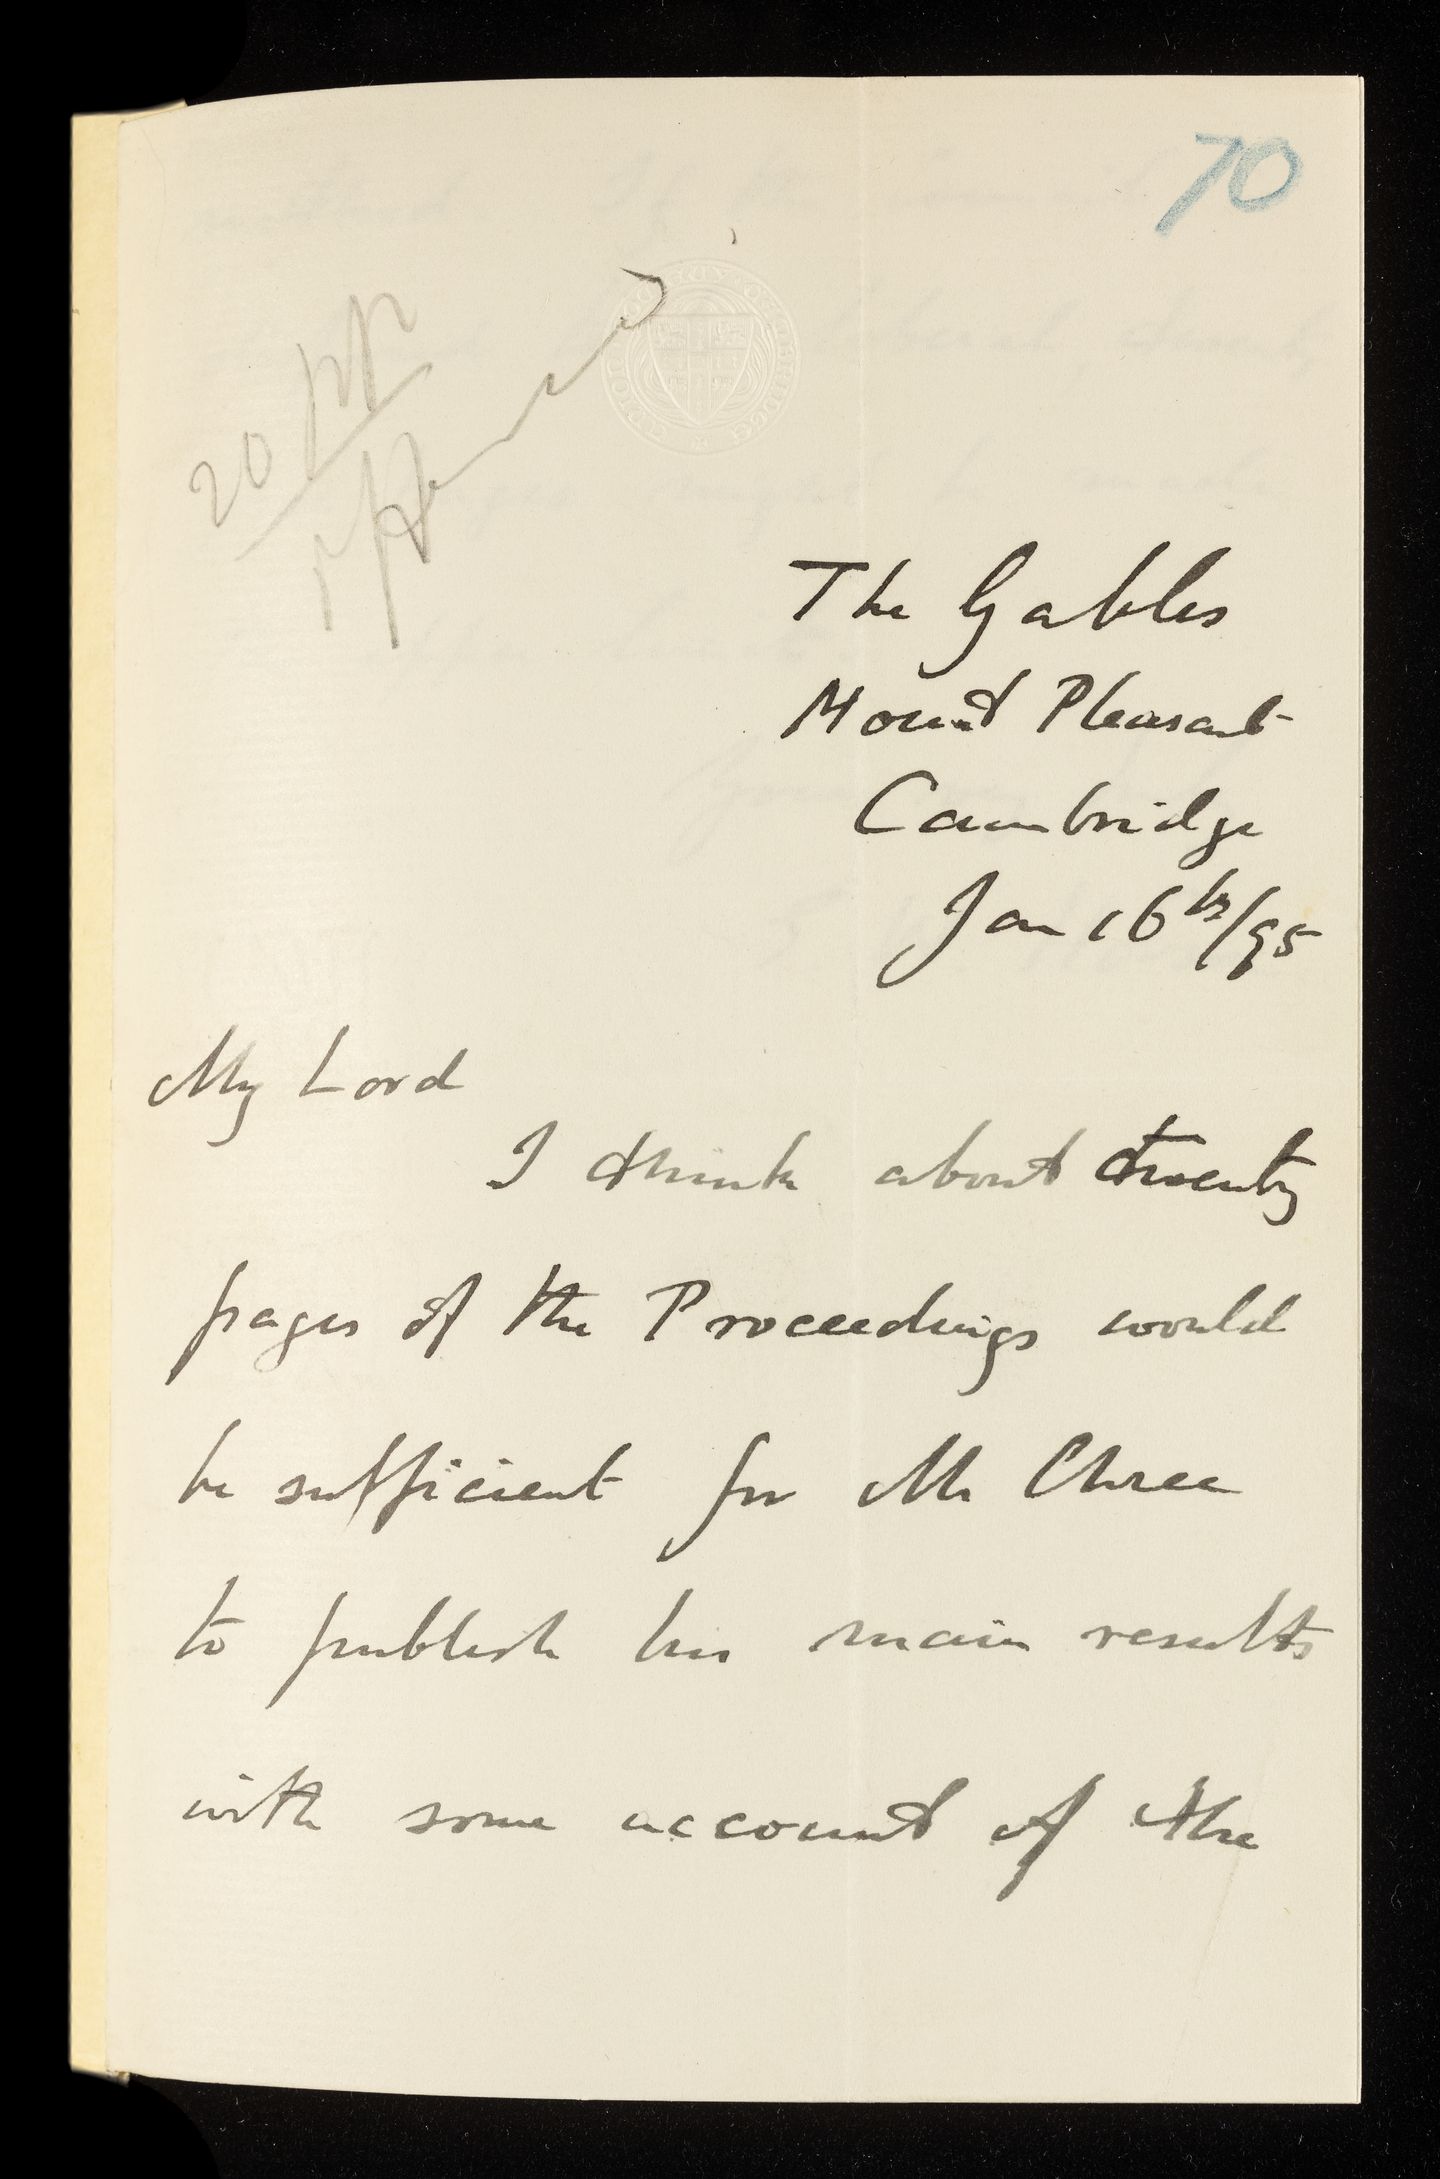 70
20 pp
The Gables
Mount Pleasant
Cambridge
Jan 16th/95
My Lord
I think about twenty
pages of the Proceedings would
be sufficient for Mr Chree
to publish his main results
with some account of the